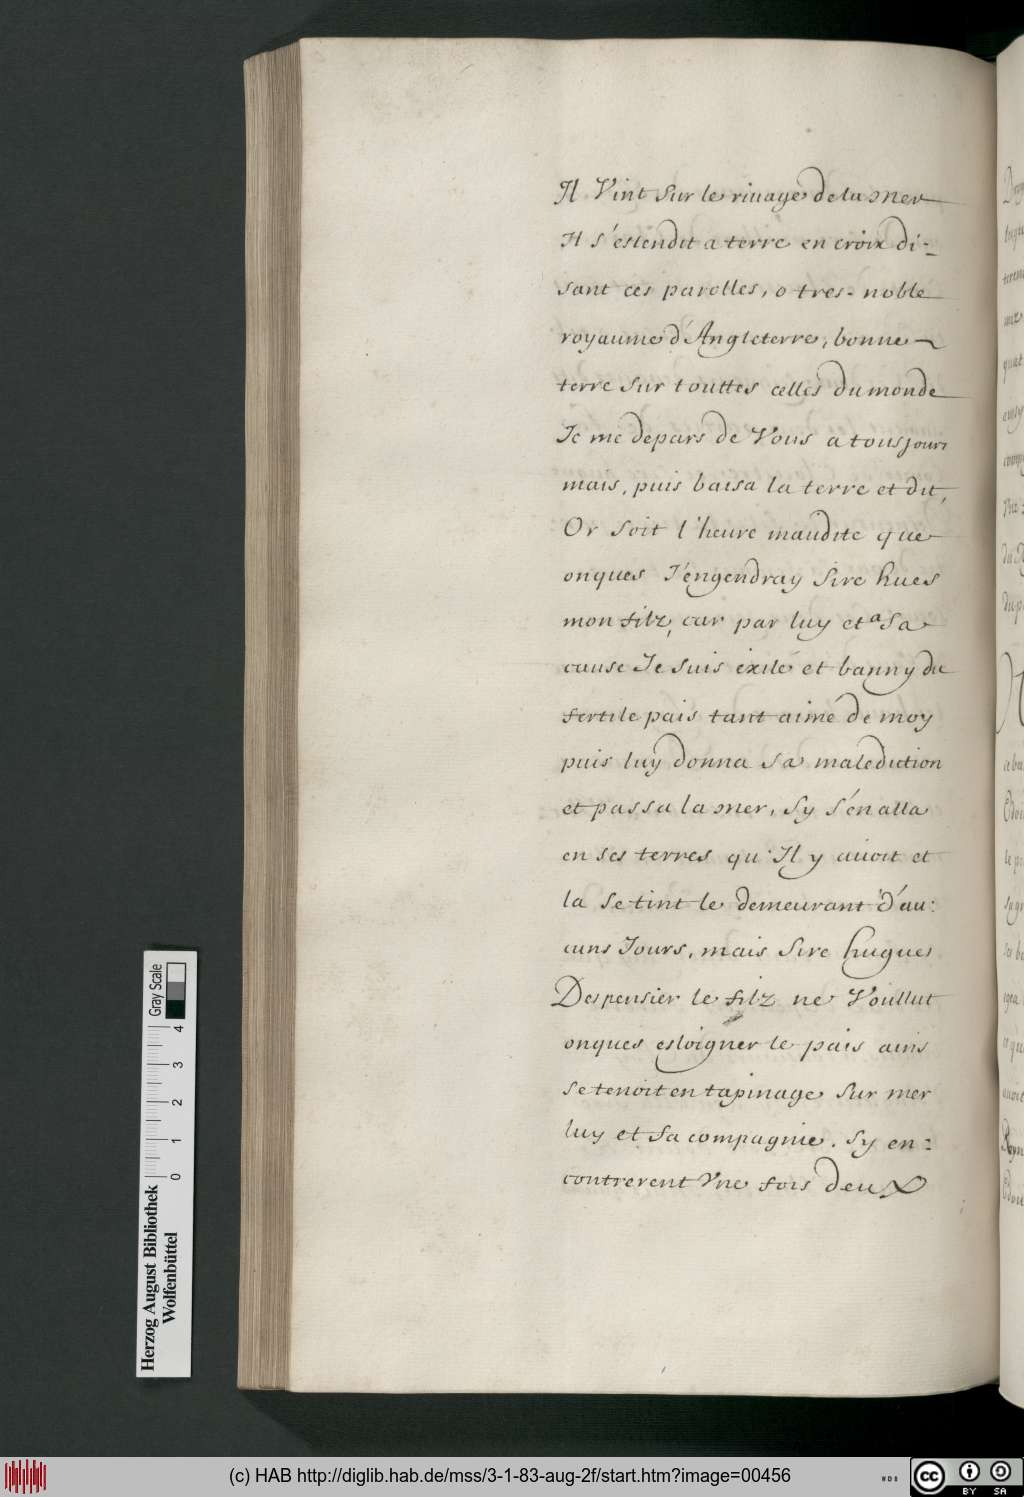 Il Vint sur le riuage de la mer
Il s'estendit a terre en croix di-
sant ces parolles, o tres-noble
royaume d'Angleterre, bonne
terre sur touttes celles du monde
Je me depars de Vous a tousjours
mais, puis baisa la terre et dit,
Or soit l'heure maudite que
onques J'engendray Sire hues
mon filz, car par luy et a sa
cause Je suis exilé et banny du
fertile pais tant aimé de moy
puis luy donna sa malediction
et passa la mer, sy s'en alla
en ses terres qu'Il y auoit et
la se tint le demeurant d'au:
cuns Jours, mais Sire hugues
Despensier le filz ne Voullut
onques esloigner le pais ains
se tenoit en tapinage sur mer
luy et sa compagnie. Sy en:
contrerent Vne fois deux
Gray Scale
0 1 2 3 4
Herzog August Bibliothek
Wolfenbüttel
(c) HAB http://diglib.hab.de/mss/3-1-83-aug-2f/start.htm?image=00456
cc BY SA